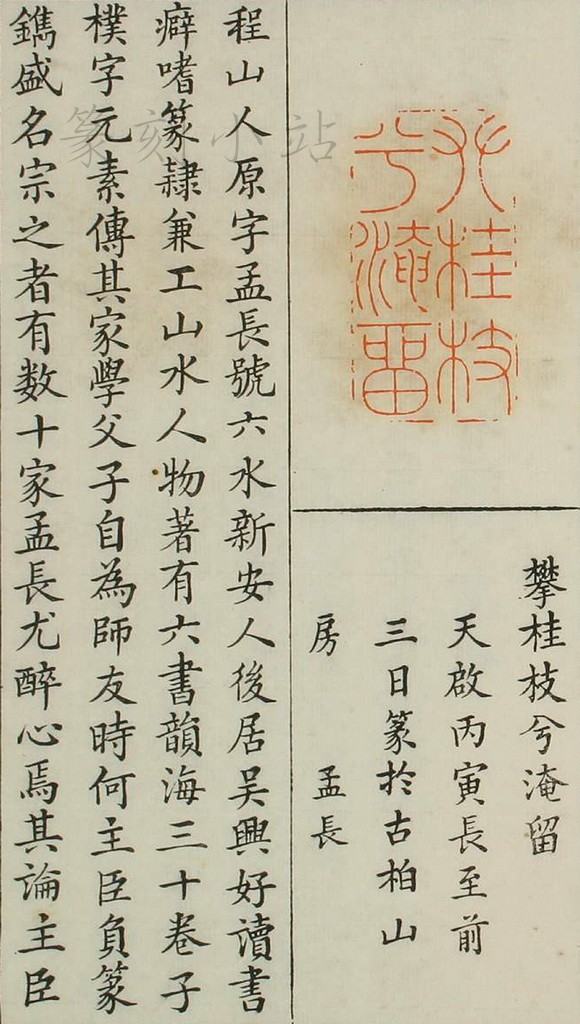 攀桂枝兮淹留
攀桂枝兮淹留
天啟丙寅長至前
三日篆於古柏山
房 孟長
程山人原字孟長號六水新安人後居吳興好讀書
癖嗜篆隸兼工山水人物著有六書韻海三十卷子
樸字元素傳其家學父子自為師友時何主臣負篆
鐫盛名宗之者有数十家孟長尤醉心焉其論主臣
篆刻小站